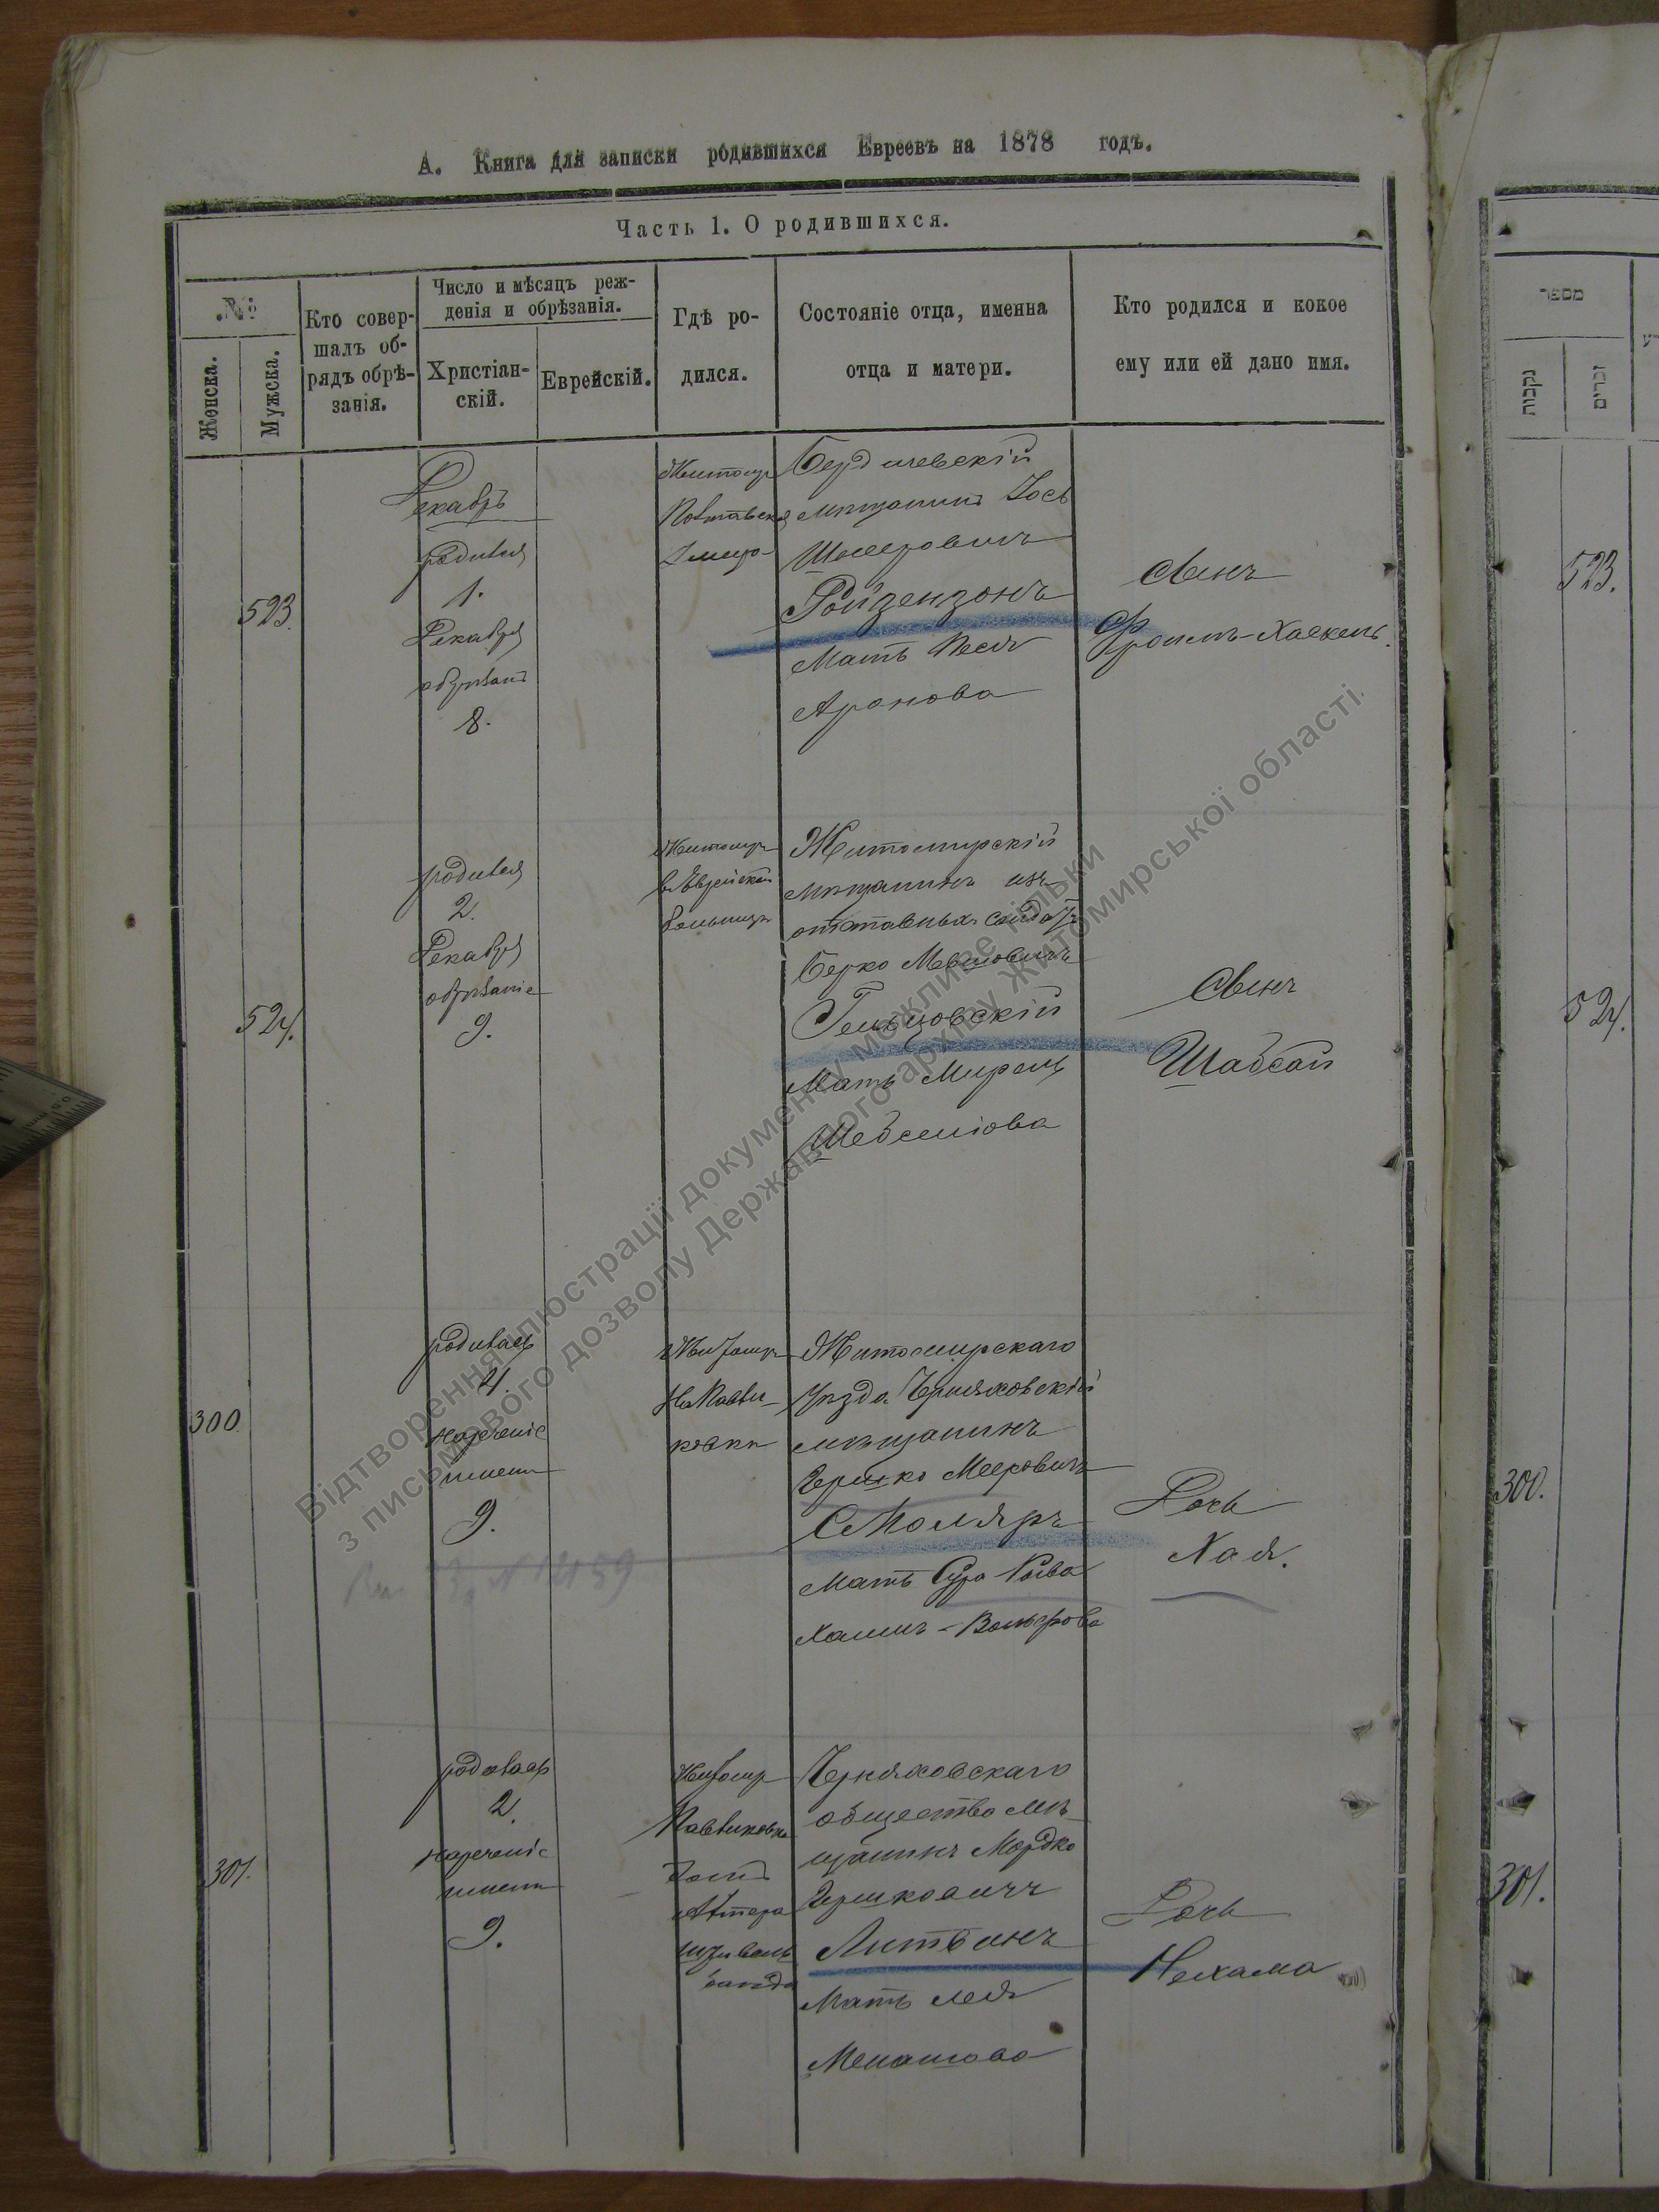 А. Книга для записки родившихся Евреевъ на 1878 годъ.
Часть 1. О родившихся.
№
Женска.
Мужска.
Кто совер-
шалъ об-
рядъ обрѣ-
занія.
Число и мѣсяцъ реж-
денія и обрѣзанія.
Христіан-
скій.
Еврейскій.
Гдѣ ро-
дился.
Состояніе отца, именна
отца и матери.
Кто родился и кокое
ему или ей дано имя.
523.
Декабръ
родился
1.
Декабря
обрѣзанъ
8.
Житомір
Бердичевскій
мѣщанинъ Іось
Шмеровичъ
Ройзензонъ
Мать Песя
Аронова
Сынъ
Фроимъ-Хаскель.
524.
родился
2.
Декабря
обрѣзаніе
9.
Житомиръ
в Еврейской
больницѣ
Житомирскій
мѣщанинъ изъ
отставныхъ солдатъ
Берко Мевшовичъ
Мать Мирель
Сынъ
Шабсай
300.
родилась
4.
нареченіе
имени
9.
Житомиръ
На Павли-
ковкѣ
Житомирскаго
уѣзда Черняховскій
мѣщанинъ
Гершко Мееровичъ
Смоляръ
Мать Сура Рыва
Хаимъ-Вольфова
Дочь
Хая.
301.
родилась
2.
нареченіе
имени
9.
Житомир
Павликовка
домъ
Черняховскаго
общества мѣ-
щанинъ Мордко
Гершковичъ
Литвинъ
Мать Лея
Менашова
Дочь
Нехама
מספר
נקבות
זכרים
523.
524.
300.
301.
Відтворення ілюстрації документу можливе тільки
з письмового дозволу Державного архіву Житомирської області.